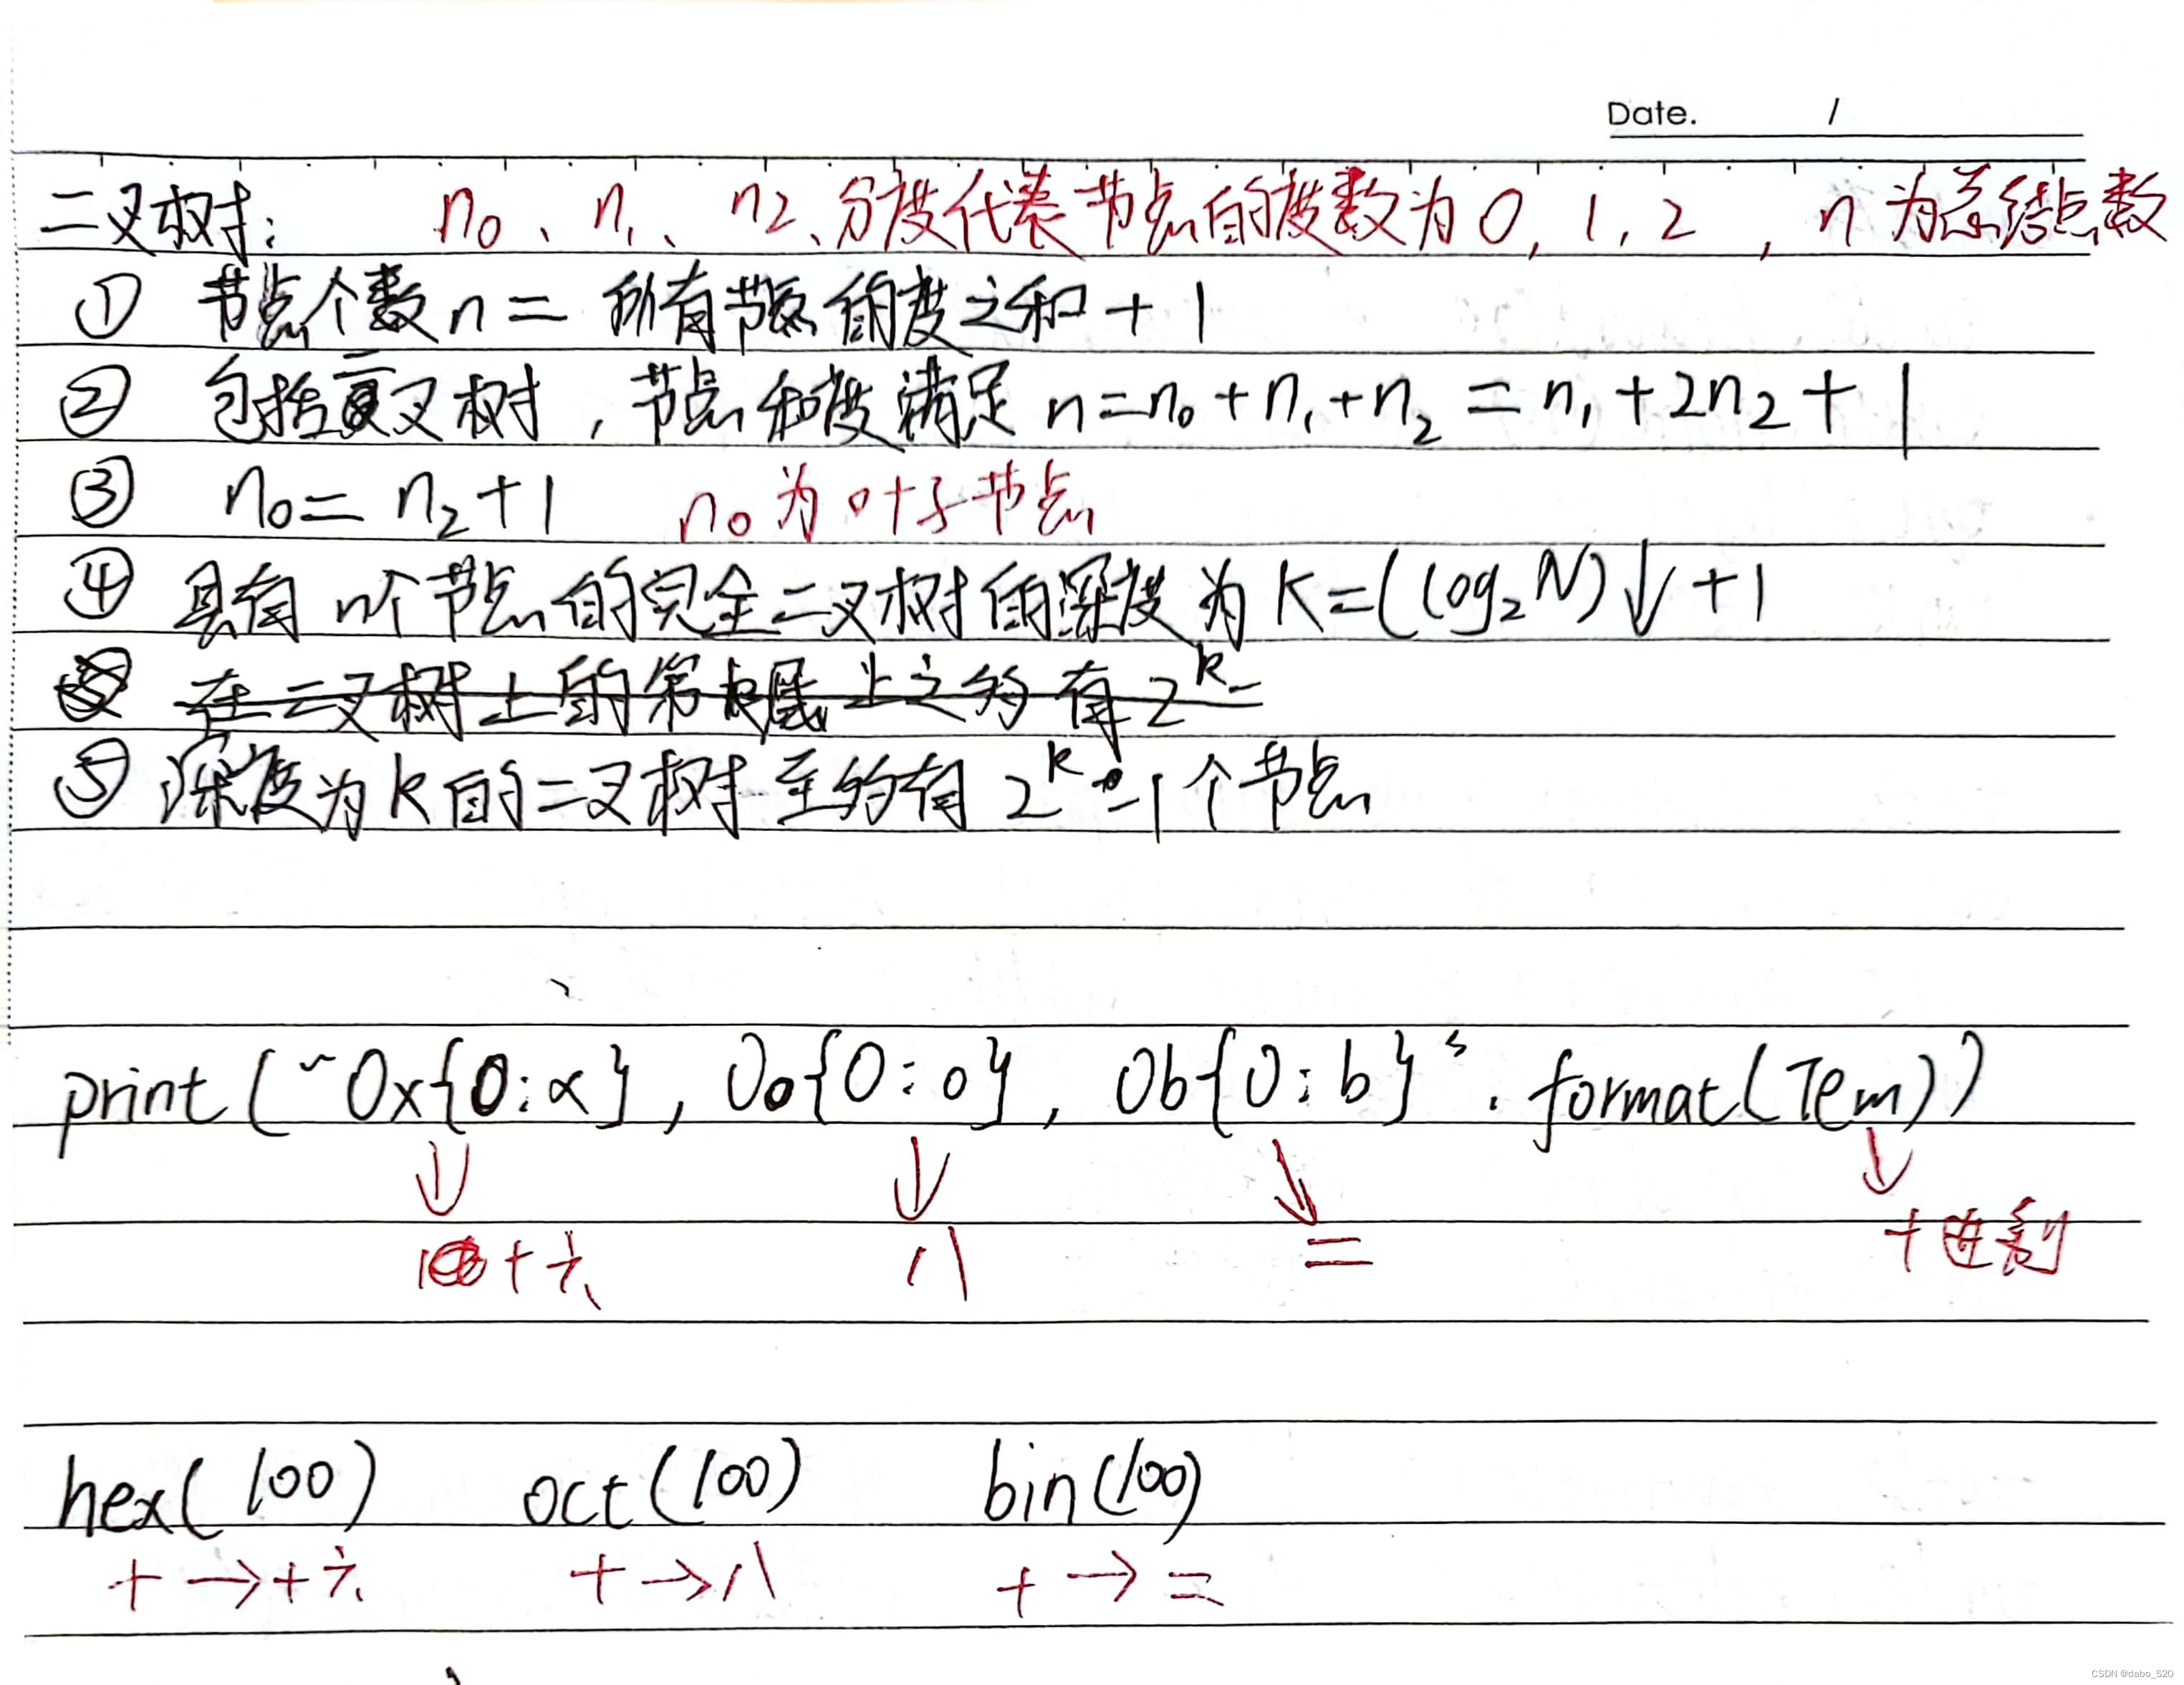 Date. /
二叉树: n₀、n₁、n₂、分度代表节点的度数为0,1,2,n为总结点数
① 节点个数n= 所有节点的度之和+1
② 包括二叉树,节点和度满足 n=n₀+n₁+n₂=n₁+2n₂+1
③ n₀=n₂+1 n₀为叶子节点
④ 具有n个节点的完全二叉树的深度为K=(log₂N)↓+1
在二叉树上的第k层上之多有2ᵏ⁻
⑤ 深度为k的二叉树至多有2ᵏ-1个节点
print("0x{0:x},0o{0:o},0b{0:b}".format(Tem))
十六 八 二 十进制
hex(100) oct(100) bin(100)
十→十六 十→八 十→二
CSDN @dabo_520